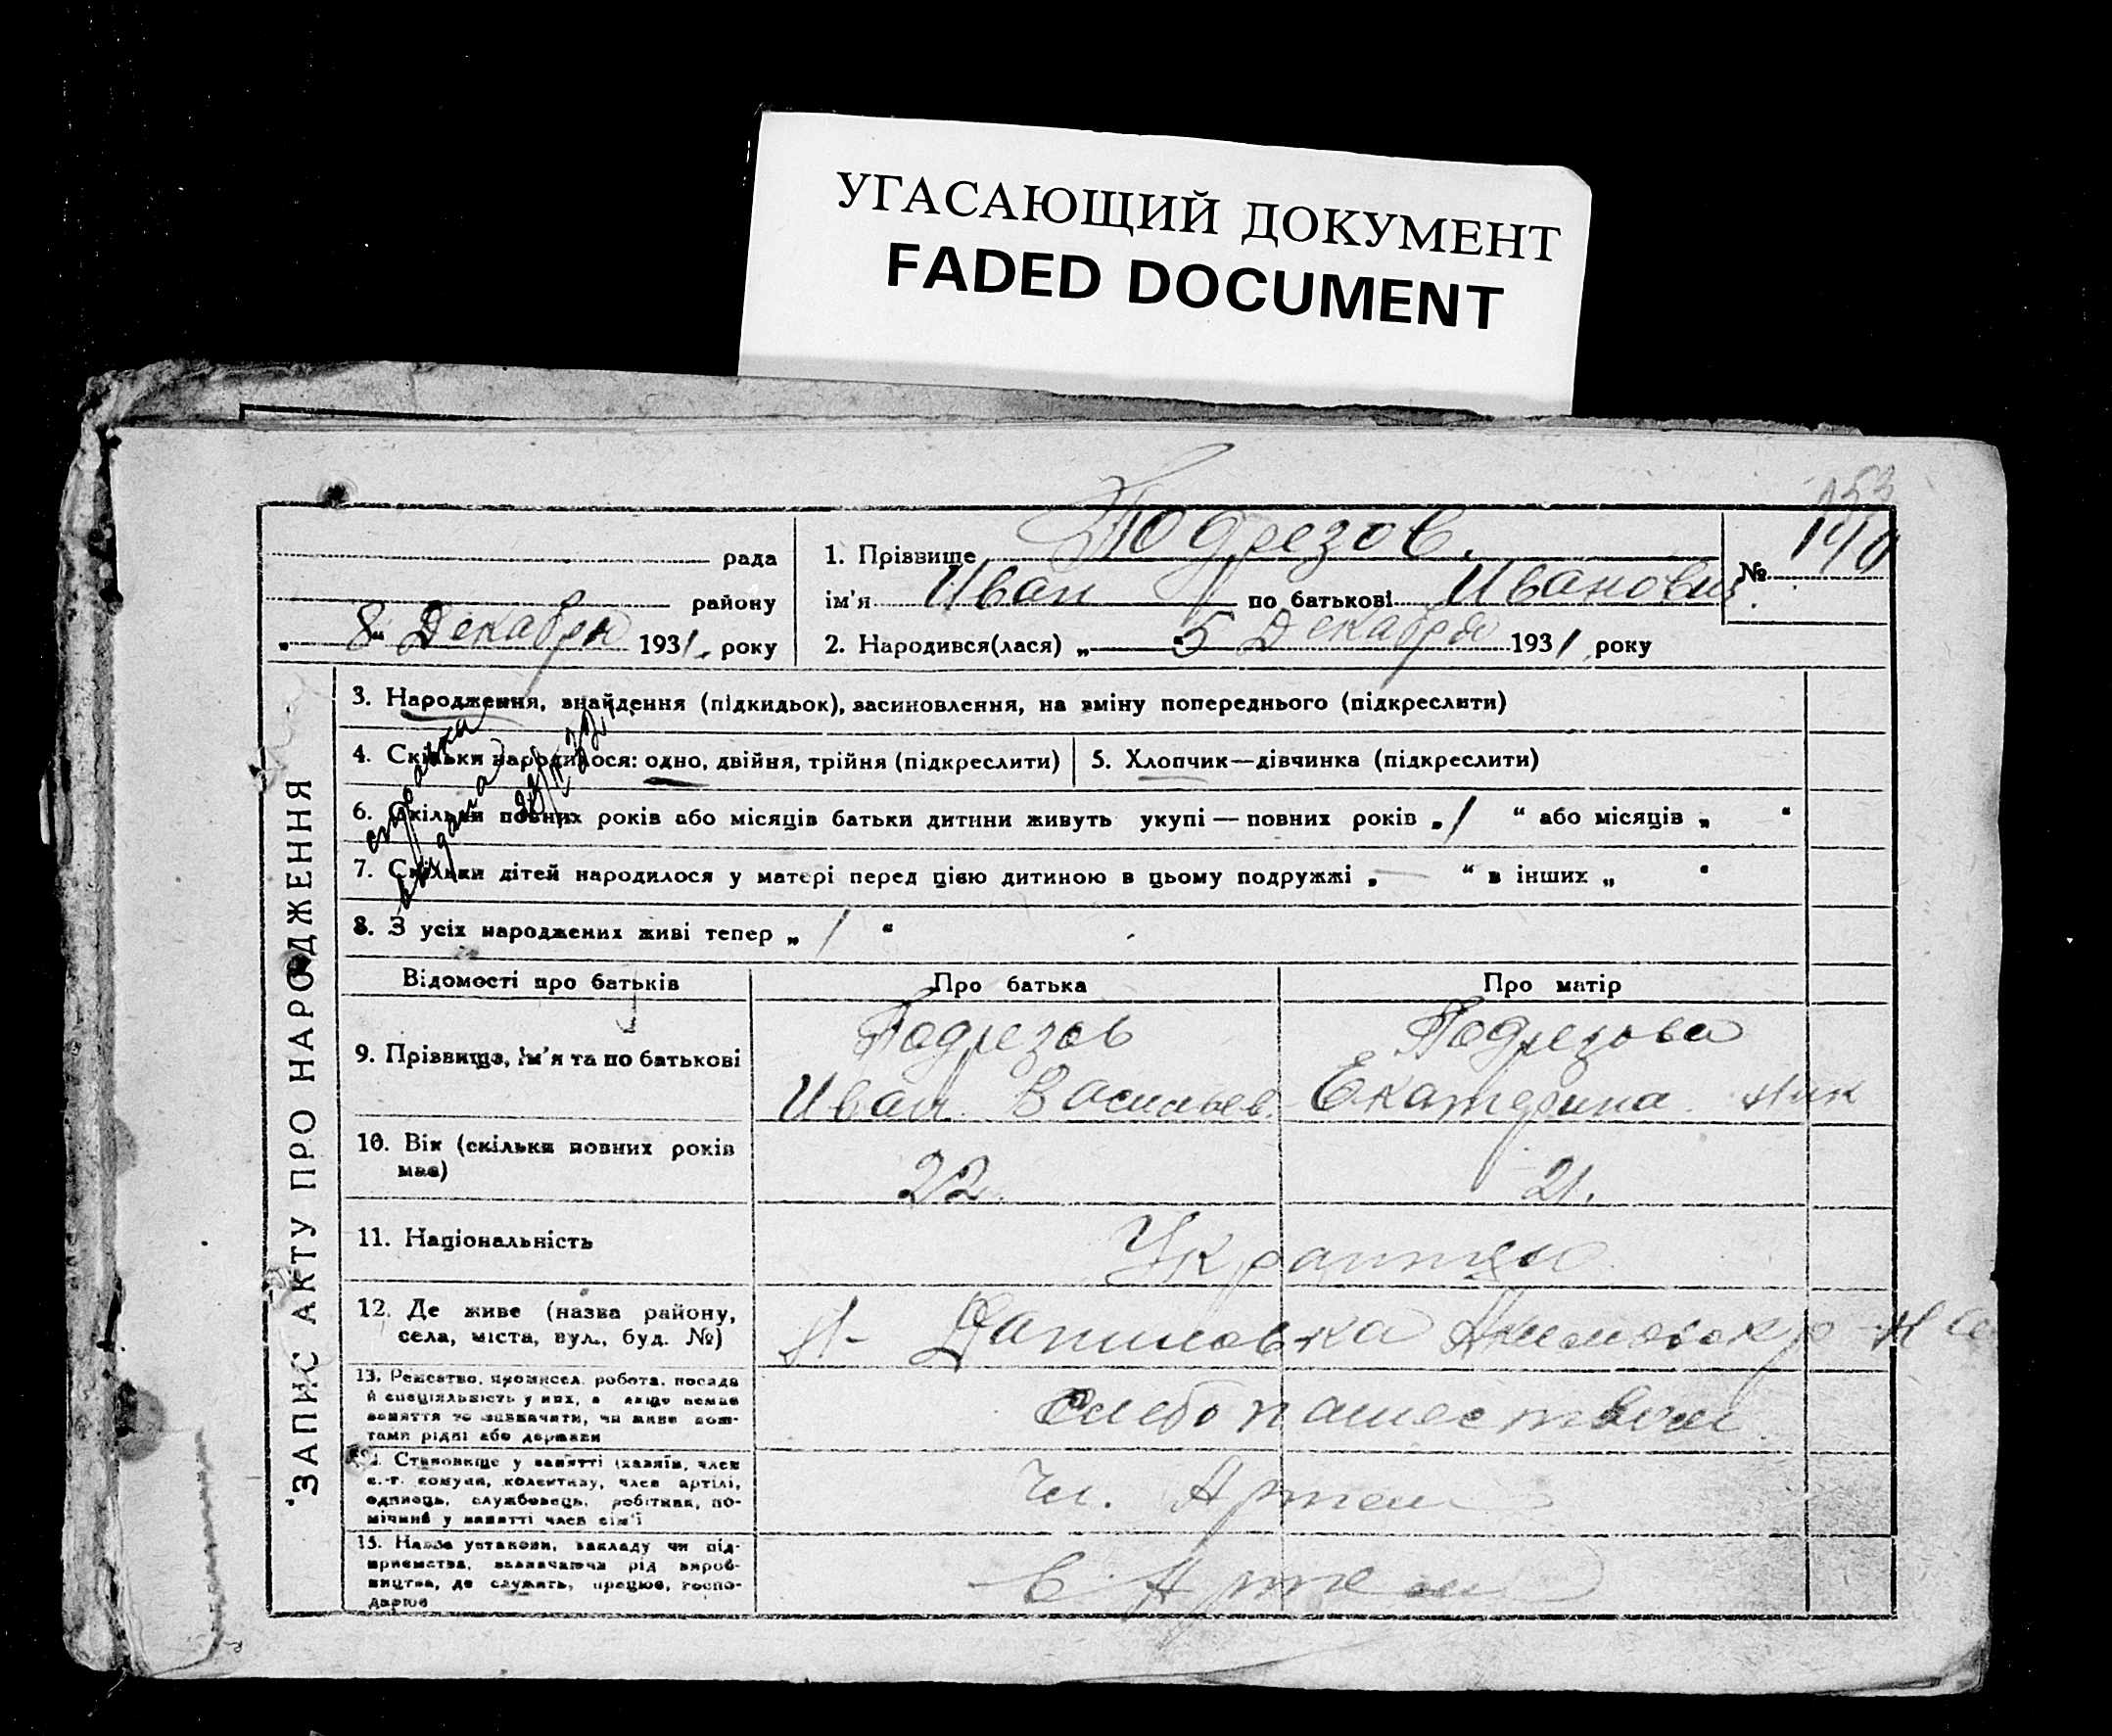 УГАСАЮЩИЙ ДОКУМЕНТ
FADED DOCUMENT
153
рада
1. Прізвище Подрезов.
№ 140
району
ім'я Иван по батькові Иванович.
„ 8 " Декабря 1931. року
2. Народився(лася) „ 5 Декабря 1931 року
ЗАПИС АКТУ ПРО НАРОДЖЕННЯ
3. Народження, знайдення (підкидьок), засиновлення, на зміну попереднього (підкреслити)
справка
выдана
4. Скільки народилося: одно, двійня, трійня (підкреслити)
5. Хлопчик—дівчинка (підкреслити)
6. Скільки повних років або місяців батьки дитини живуть укупі — повних років „ 1 “ або місяців „ “
7. Скільки дітей народилося у матері перед цією дитиною в цьому подружжі „ — “ в інших „ “
8. З усіх народжених живі тепер „ 1 “
Відомості про батьків
Про батька
Про матір
9. Прізвище, ім'я та по батькові
Подрезов
Иван Васильев.
Подрезова
Екатерина Ник
10. Вік (скільки повних років
має)
22
21.
11. Національність
Украинцы
12. Де живе (назва району,
села, міста, вул., буд. №)
Н- Даниловка Акимовск р-на
13. Ремество, промисел, робота, посада
й спеціяльність у них, а якщо немає
заняття то зазначити, чи живе кош-
тами рідні або держави
хлебопашеством
14. Становище у занятті (хазяїн, член
с.-г. комуни, колективу, член артілі,
одинець, службовець, робітник, по-
мічний у занятті член сім'ї
Чл. Артели
15. Назва установи, закладу чи під-
приємства, зазначаючи рід вироб-
ництва, де служить, працює, госпо-
дарює
в Артели